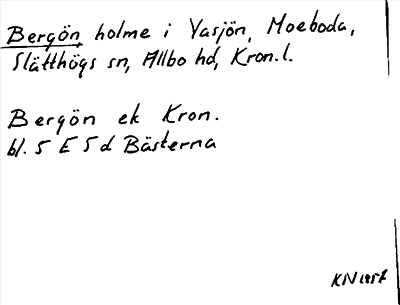 Bergön, holme i Vasjön, Moeboda,
Slätthögs sn, Allbo hd, Kron.l.
Bergön ek Kron.
bl. 5 E 5 d Bästerna
KN 1957